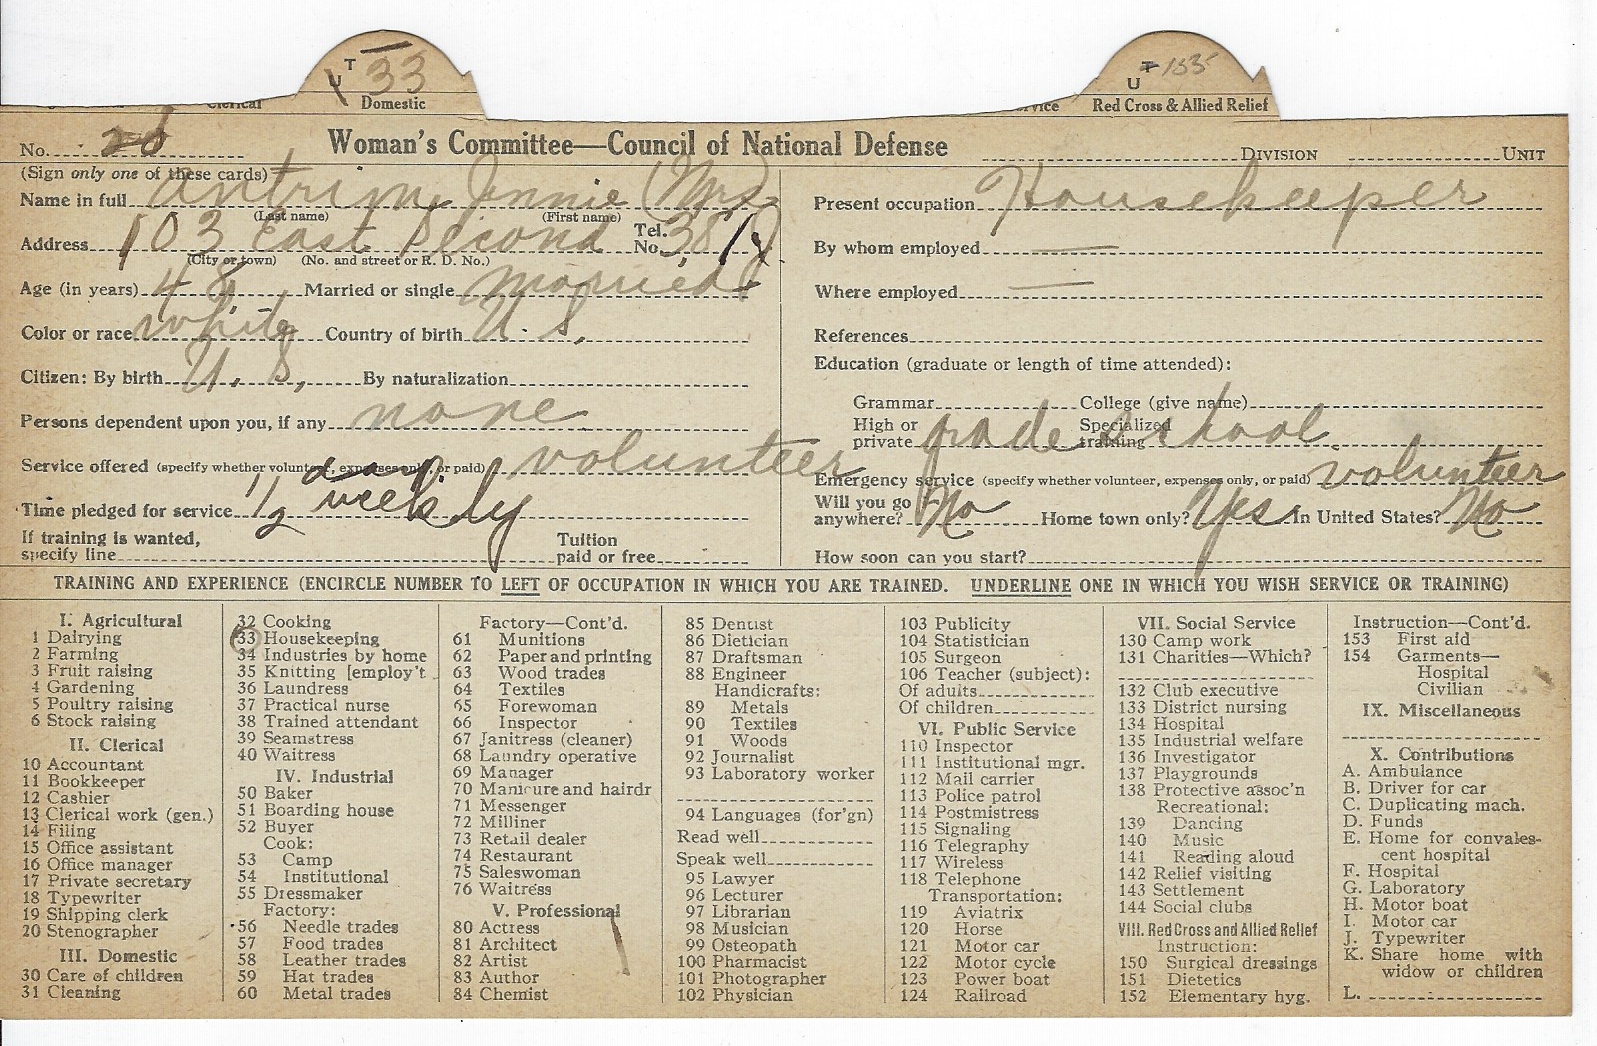 T
U 33
Domestic
T 155
U
Red Cross & Allied Relief
No. Woman's Committee—Council of National Defense DIVISION UNIT
(Sign only one of these cards)
Name in full Antrim, Jennie (Mrs.
(Last name) (First name)
Address 103 East Second Tel. No.
(City or town) (No. and street or R. D. No.)
Age (in years) 48 Married or single married
Color or race white Country of birth U. S.
Citizen: By birth U. S. By naturalization
Persons dependent upon you, if any none
Service offered (specify whether volunteer, expenses only, or paid) volunteer
Time pledged for service 1/2 day weekly
If training is wanted, specify line Tuition paid or free
Present occupation Housekeeper
By whom employed —
Where employed —
References
Education (graduate or length of time attended):
Grammar College (give name)
High or private grade school Specialized training
Emergency service (specify whether volunteer, expenses only, or paid) volunteer
Will you go anywhere? No Home town only? Yes In United States? No
How soon can you start?
TRAINING AND EXPERIENCE (ENCIRCLE NUMBER TO LEFT OF OCCUPATION IN WHICH YOU ARE TRAINED. UNDERLINE ONE IN WHICH YOU WISH SERVICE OR TRAINING)
I. Agricultural
1 Dairying
2 Farming
3 Fruit raising
4 Gardening
5 Poultry raising
6 Stock raising
II. Clerical
10 Accountant
11 Bookkeeper
12 Cashier
13 Clerical work (gen.)
14 Filing
15 Office assistant
16 Office manager
17 Private secretary
18 Typewriter
19 Shipping clerk
20 Stenographer
III. Domestic
30 Care of children
31 Cleaning
32 Cooking
33 Housekeeping
34 Industries by home
35 Knitting [employ't
36 Laundress
37 Practical nurse
38 Trained attendant
39 Seamstress
40 Waitress
IV. Industrial
50 Baker
51 Boarding house
52 Buyer
Cook:
53 Camp
54 Institutional
55 Dressmaker
Factory:
56 Needle trades
57 Food trades
58 Leather trades
59 Hat trades
60 Metal trades
Factory—Cont'd.
61 Munitions
62 Paper and printing
63 Wood trades
64 Textiles
65 Forewoman
66 Inspector
67 Janitress (cleaner)
68 Laundry operative
69 Manager
70 Manicure and hairdr
71 Messenger
72 Milliner
73 Retail dealer
74 Restaurant
75 Saleswoman
76 Waitress
V. Professional
80 Actress
81 Architect
82 Artist
83 Author
84 Chemist
85 Dentist
86 Dietician
87 Draftsman
88 Engineer
Handicrafts:
89 Metals
90 Textiles
91 Woods
92 Journalist
93 Laboratory worker
94 Languages (for'gn)
Read well
Speak well
95 Lawyer
96 Lecturer
97 Librarian
98 Musician
99 Osteopath
100 Pharmacist
101 Photographer
102 Physician
103 Publicity
104 Statistician
105 Surgeon
106 Teacher (subject):
Of adults
Of children
VI. Public Service
110 Inspector
111 Institutional mgr.
112 Mail carrier
113 Police patrol
114 Postmistress
115 Signaling
116 Telegraphy
117 Wireless
118 Telephone
Transportation:
119 Aviatrix
120 Horse
121 Motor car
122 Motor cycle
123 Power boat
124 Railroad
VII. Social Service
130 Camp work
131 Charities—Which?
132 Club executive
133 District nursing
134 Hospital
135 Industrial welfare
136 Investigator
137 Playgrounds
138 Protective assoc'n
Recreational:
139 Dancing
140 Music
141 Reading aloud
142 Relief visiting
143 Settlement
144 Social clubs
VIII. Red Cross and Allied Relief
Instruction:
150 Surgical dressings
151 Dietetics
152 Elementary hyg.
Instruction—Cont'd.
153 First aid
154 Garments—
Hospital
Civilian
IX. Miscellaneous
X. Contributions
A. Ambulance
B. Driver for car
C. Duplicating mach.
D. Funds
E. Home for convales-
cent hospital
F. Hospital
G. Laboratory
H. Motor boat
I. Motor car
J. Typewriter
K. Share home with
widow or children
L.